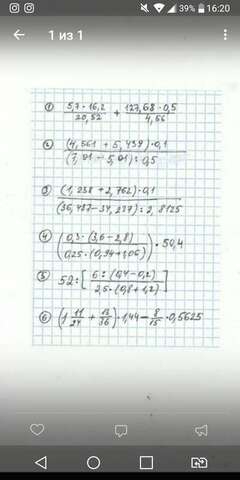 39% 16:20
1 из 1
① (5,7 · 16,2)/20,52 + (127,68 · 0,5)/4,56
② ((4,561 + 5,439) · 0,1)/((7,01 − 5,01) : 0,5)
③ ((1,238 + 2,762) · 0,1)/((36,487 − 34,237) : 2,8125)
④ ((0,3 · (3,6 − 2,8))/(0,25 · (0,94 + 1,06))) · 50,4
⑤ 52 : [(6 : (0,4 − 0,2))/(2,5 · (0,8 + 1,2))]
⑥ (1 11/24 + 13/36) · 1,44 − 8/15 · 0,5625